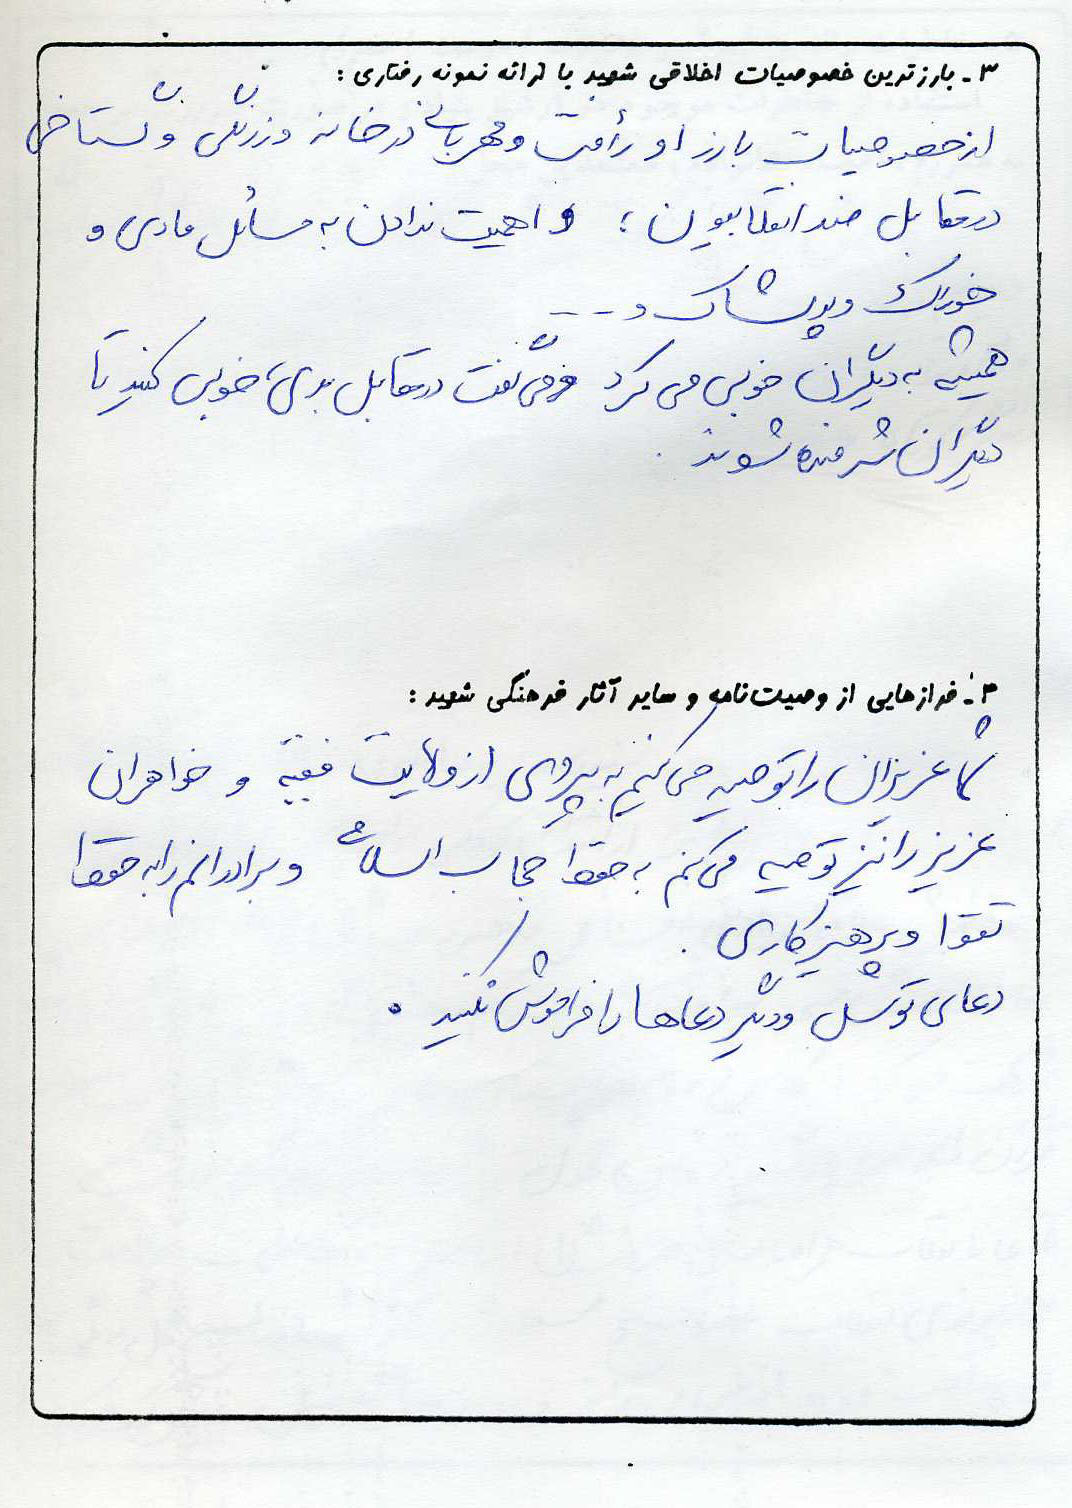 ۳ - بارزترین خصوصیات اخلاقی شهید با ارائه نمونه رفتاری :
از خصوصیات بارز او رأفت و مهربانی در خانه و زرنگی و گستاخی
در مقابل ضد انقلابیون ؛ و اهمیت ندادن به مسائل مادی و
خوراک و پوشاک و ---
همیشه به دیگران خوبی می کرد و می گفت در مقابل بدی، خوبی کنید تا
دیگران شرمنده شوند .
۴ - فرازهایی از وصیت‌نامه و سایر آثار فرهنگی شهید :
شما عزیزان را توصیه می کنم به پیروی از ولایت فقیه و خواهران
عزیز را نیز توصیه می کنم به حفظ حجاب اسلامی و برادرانم را به حفظ
تقوا و پرهیزکاری .
دعای توسل و دیگر دعاها را فراموش نکنید .